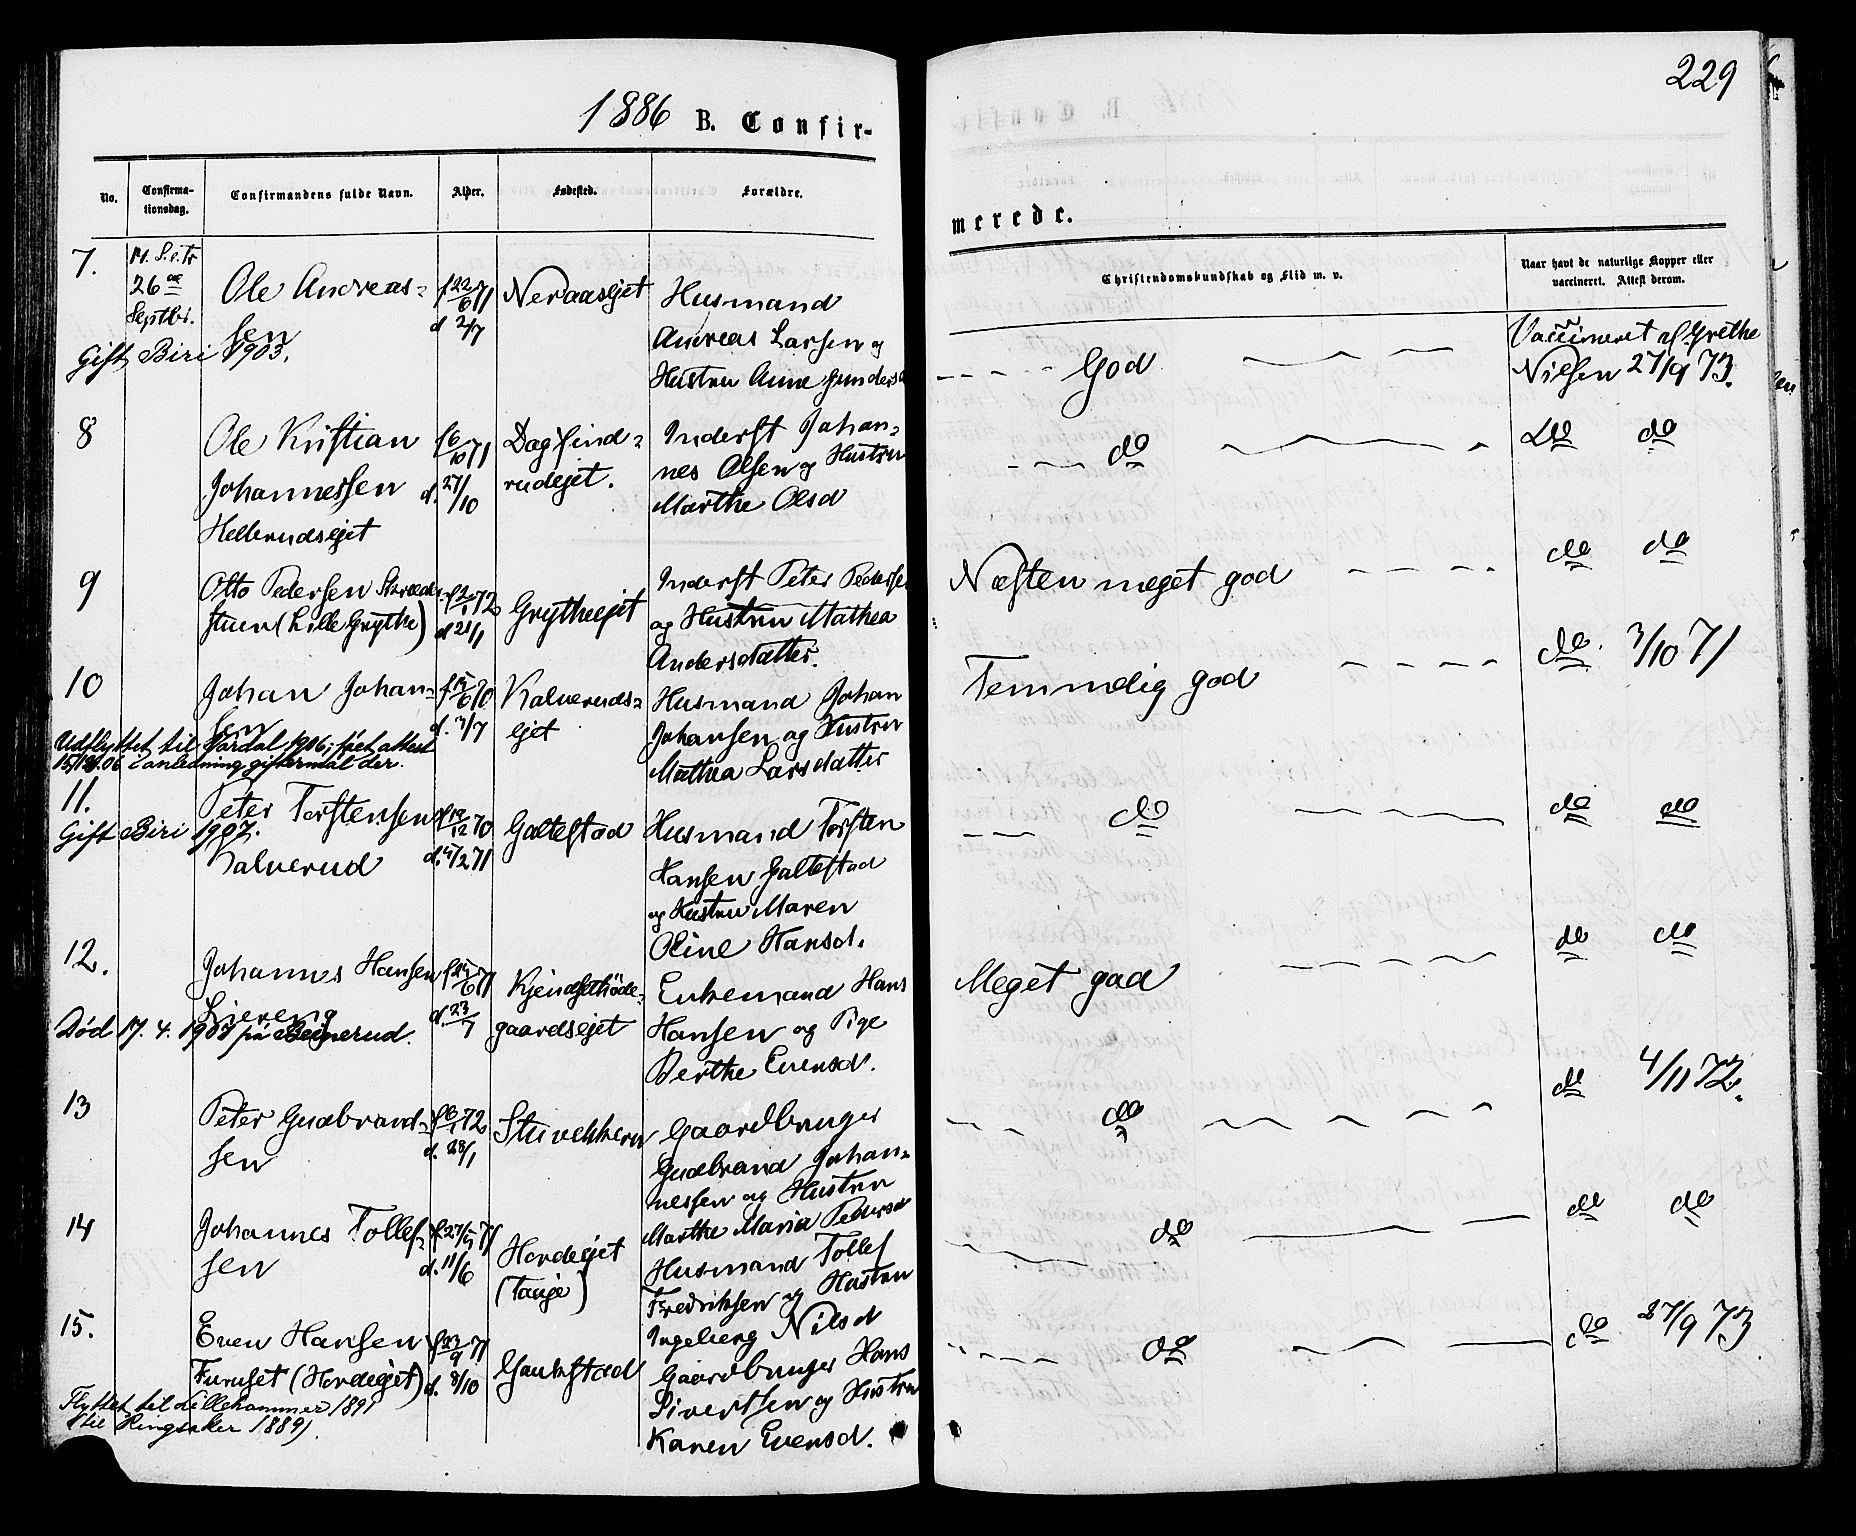 229
1886 B. Confir-
merede.
No.
Confirma-
tionsdag.
Confirmandens fulde Navn.
Alder.
Fødested.
Forældre.
Christendomskundskab og Flid m. v.
Naar havt de naturlige Kopper eller
vaccineret. Attest derom.
7.
26de
Septbr.
Ole Andreas-
sen
Gift, Biri 1903.
f 22/6 71
d 2/7
Neraasejet
Husmand
Andreas Larsen og
Hustru Anne
God
Vaccineret af Grethe
Nilsen 27/9 73.
8
Ole Kristian
Johannessen
Hellerudsejet
f 6/10 71
d. 27/10
Dagfind-
rudejet.
Inderst Johan-
nes Olsen og Hustru
Marthe Olsd
do
do do
9
Otto Pedersen
stuen (Lille Grythe)
f 2/1 72
d 21/1
Grytheejet
Inderst Peter Pedersen
og Hustru Mathea
Andersdatter.
Næsten meget god
do do
10
Johan Johan-
sen
Udflyttet til Vardal 1906; fået attest
15/12.06 i anledning giftermål der.
f 15/6 70
d. 3/7
Kalveruds-
ejet
Husmand Johan
Johansen og Hustru
Mathea Larsdatter
Temmelig god
do. 3/10 71
11.
Peter Torstensen
Gift Biri 1907.
Kalverud
f 19/12 70
d. 2 71
Galtestad
Husmand Torsten
Hansen Galtestad
og Hustru Maren
Oline Hansd.
do
do do
12.
Johannes Hansen
Liereng
Død 17. 4. 1907 på
f 24/6 71
d. 23/7
gaardsejet
Enkemand Hans
Hansen og Pige
Berthe Evensd.
Meget god
do do
13
Peter Gudbrand-
sen
f 6/1 72
d. 28/1
Stuvekkern
Gaardbruger
Gudbrand Johan-
nessen og Hustru
Marthe Maria Pedersd
do
do 4/11 72.
14
Johannes Tollef-
sen
f 27/5 71
d. 11/6
Hovdeejet
Husmand Tollef
Fredriksen og Hustru
Ingeborg Nilsd
do
do do
15.
Even Hansen
Furuset (Hovdeejet)
Flyttet til Lillehammer 1891
(til Ringsaker 1889).
f 23/9 71
d. 8/10
Gaukstad
Gaardbruger Hans
Sivertsen og Hustru
Karen Evensd.
do
do 27/9 73